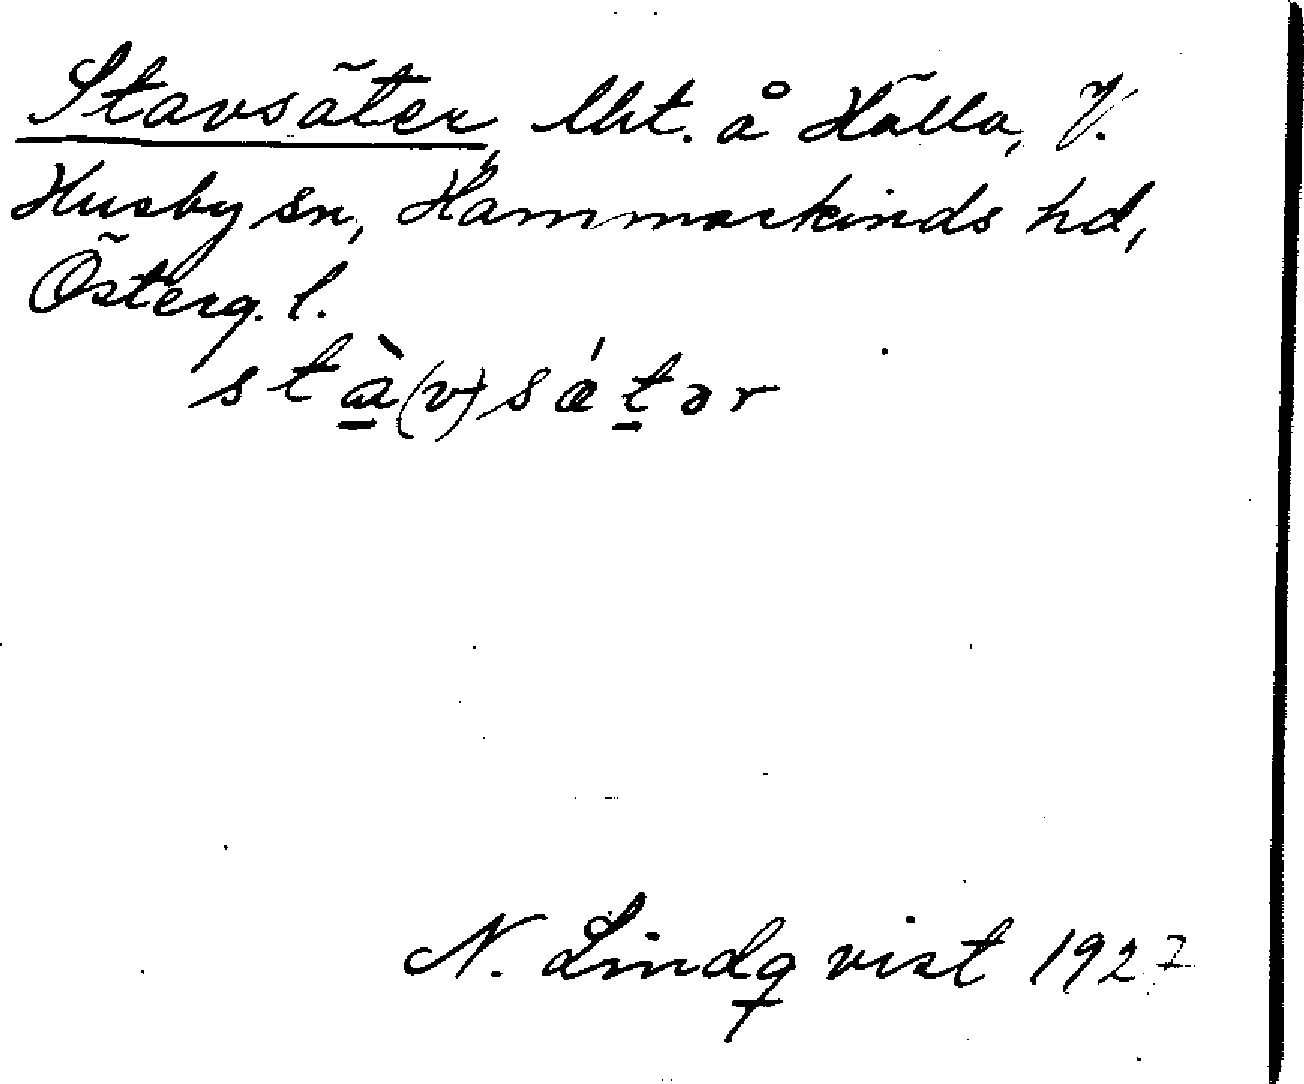 Stavsäter, lht. å Hälla, V.
Husby sn, Hammarkinds hd,
Österg. l.
stà̱(v)sátər
N. Lindqvist 1927